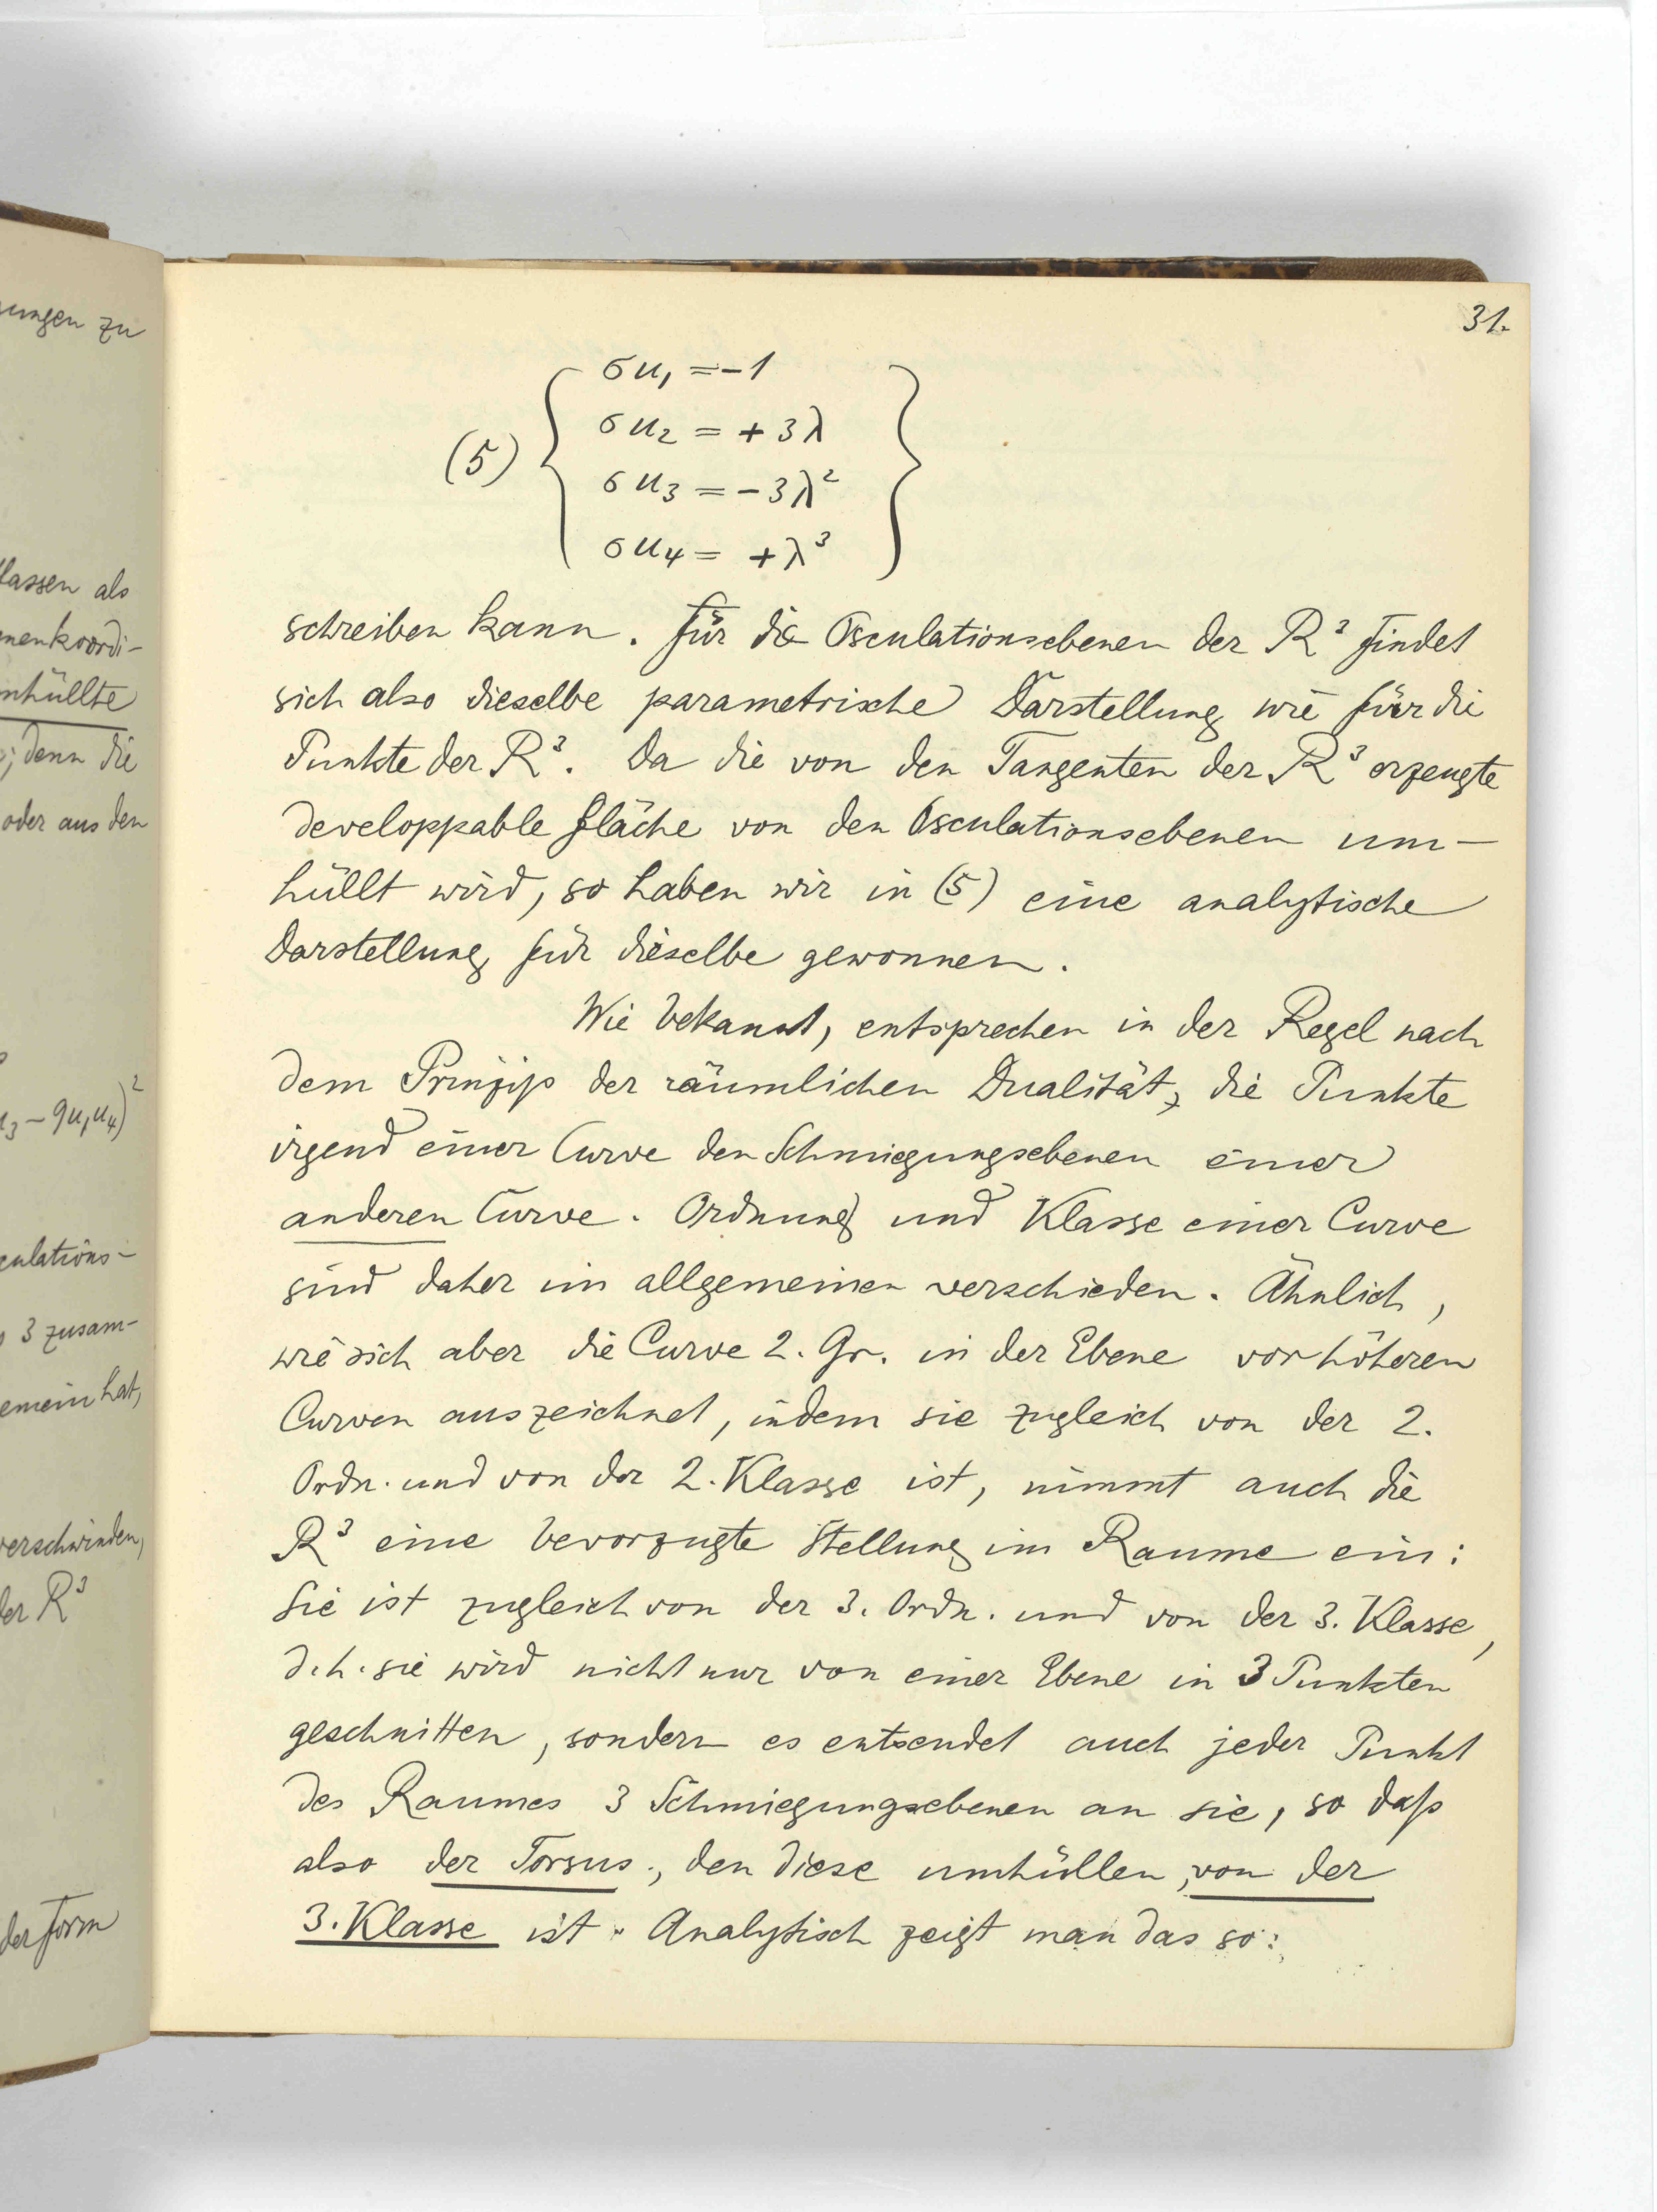 ungen zu
lassen als
menkoordi-
nhüllte
; denn die
oder aus den
u₃ – 9u₁u₄)²
culations-
3 zusam-
emein hat,
verschwinden,
der R³
der Form
31.
(5) { σu₁ = –1
σu₂ = + 3λ
σu₃ = – 3λ²
σu₄ = + λ³ }
schreiben kann. Für die Osculationsebenen der R³ findet
sich also dieselbe parametrische Darstellung wie für die
Punkte der R³. Da die von den Tangenten der R³ erzeugte
developpable Fläche von den Osculationsebenen um-
hüllt wird, so haben wir in (5) eine analytische
Darstellung für dieselbe gewonnen.
Wie bekannt, entsprechen in der Regel nach
dem Prinzip der räumlichen Dualität, die Punkte
irgend einer Curve den Schmiegungsebenen einer
anderen Curve. Ordnung und Klasse einer Curve
sind daher im allgemeinen verschieden. Ähnlich,
wie sich aber die Curve 2. Gr. in der Ebene vor höheren
Curven auszeichnet, indem sie zugleich von der 2.
Ordn. und von der 2. Klasse ist, nimmt auch die
R³ eine bevorzugte Stellung im Raume ein:
Sie ist zugleich von der 3. Ordn. und von der 3. Klasse,
d.h. sie wird nicht nur von einer Ebene in 3 Punkten
geschnitten, sondern es entsendet auch jeder Punkt
des Raumes 3 Schmiegungsebenen an sie, so daß
also der Torsus, den diese umhüllen, von der
3. Klasse ist. Analytisch zeigt man das so: